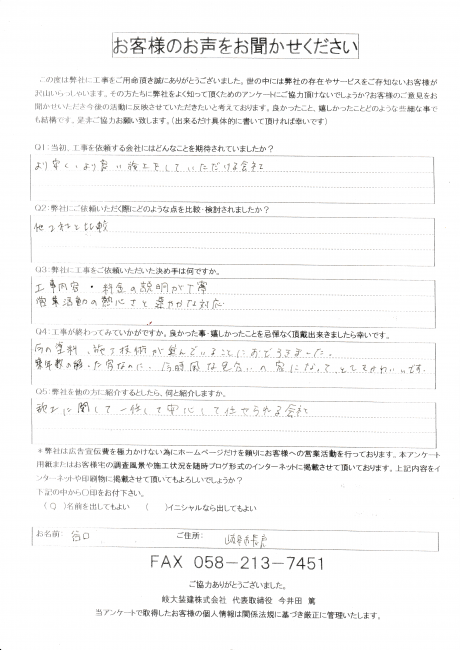 お客様のお声をお聞かせください
この度は弊社に工事をご用命頂き誠にありがとうございました。世の中には弊社の存在やサービスをご存知ないお客様が
沢山いらっしゃいます。その方たちに弊社をよく知って頂くためのアンケートにご協力頂けないでしょうか?お客様のご意見をお
聞かせいただき今後の活動に反映させていただきたいと考えております。良かったこと、嬉しかったことどのような些細な事で
も結構です、是非ご協力お願い致します。(出来るだけ具体的に書いて頂ければ幸いです)
Q1:当初、工事を依頼する会社にはどんなことを期待されていましたか?
より安く、より良い施工をしていただける会社
Q2:弊社にご依頼いただく際にどのような点を比較・検討されましたか?
他2社と比較
Q3:弊社に工事をご依頼いただいた決め手は何ですか。
工事内容・料金の説明が丁寧
営業活動の熱心さと速やかな対応
Q4:工事が終わってみていかがですか。良かった事・嬉しかったことを忌憚なく頂戴出来きましたら幸いです。
今の塗料、施工技術が進んでいることにおどろきました。
築年数の経った家なのに、今時風な色合いの家になって、とてもかわいいです。
Q5:弊社を他の方に紹介するとしたら、何と紹介しますか。
施工に関して一任して安心して任せられる会社
*弊社は広告宣伝費を極力かけない為にホームページだけを頼りにお客様への営業活動を行っております。本アンケート
用紙またはお客様宅の調査風景や施工状況を随時ブログ形式のインターネットに掲載させて頂いております。上記内容をイ
ンターネットや印刷物に掲載させて頂いてもよろしいでしょうか?
下記の中から○印をお付下さい。
(○)名前を出してもよい ( )イニシャルなら出してもよい
お名前: 谷口 ご住所: 岐阜市長良
FAX 058-213-7451
ご協力ありがとうございました。
岐大装建株式会社 代表取締役 今井田 篤
当アンケートで取得したお客様の個人情報は関係法規に基づき厳正に管理いたします。